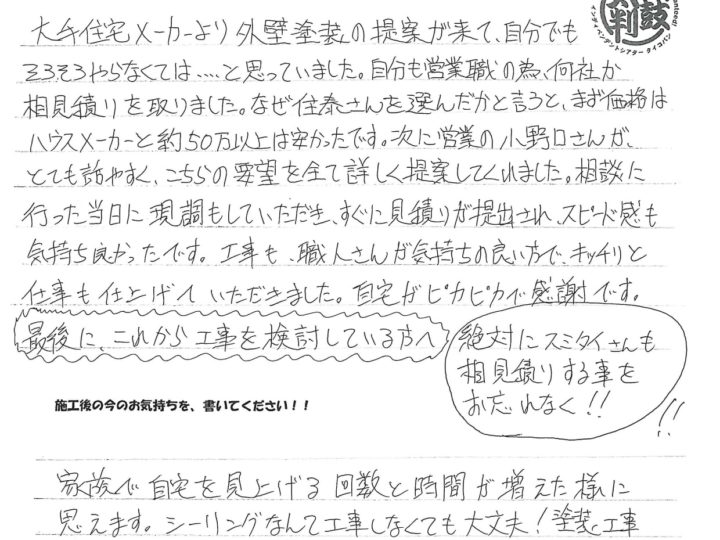 大手住宅メーカーより外壁塗装の提案が来て、自分でも
そろそろやらなくては‥‥と思っていました。自分も営業職の為、何社か
相見積りを取りました。なぜ住泰さんを選んだかと言うと、まず価格は
ハウスメーカーと約50万以上は安かったです。次に営業の小野口さんが、
とても話やすく、こちらの要望を全て詳しく提案してくれました。相談に
行った当日に現調もしていただき、すぐに見積りが提出され、スピード感も
気持ち良かったです。工事も、職人さんが気持ちの良い方で、キッチリと
仕事も仕上げていただきました。自宅がピカピカで感謝です。
最後に、これから工事を検討している方へ
絶対にスミタイさんも
相見積りする事を
お忘れなく!!
!!
施工後の今のお気持ちを、書いてください!!
家族で自宅を見上げる回数と時間が増えた様に
思えます。シーリングなんて工事しなくても大丈夫!塗装工事
判鼓
インディペンデントシアター タイコバン